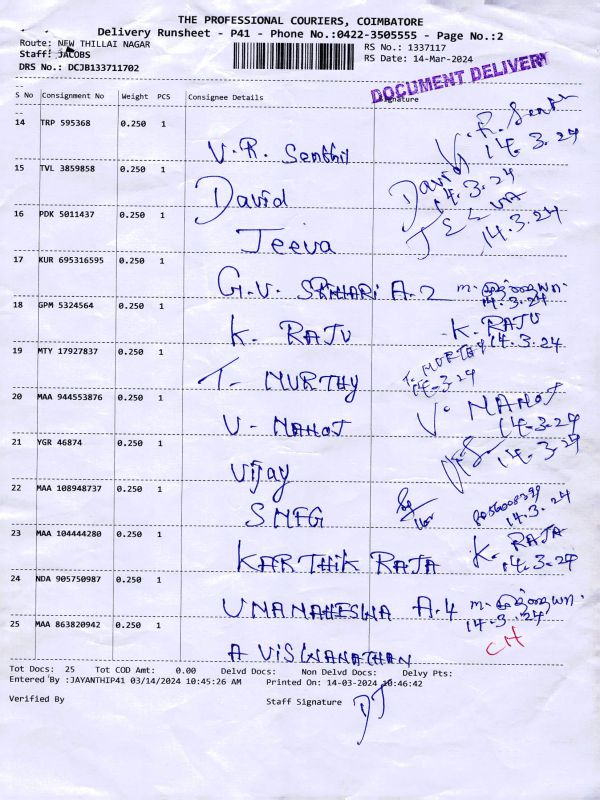 THE PROFESSIONAL COURIERS, COIMBATORE
Delivery Runsheet - P41 - Phone No.:0422-3505555 - Page No.:2
Route: NEW THILLAI NAGAR
RS No.: 1337117
Staff: JACOBS
RS Date: 14-Mar-2024
DRS No.: DCJB133711702
DOCUMENT DELIVERY
S No Consignment No Weight PCS Consignee Details Signature
14 TRP 595368 0.250 1 V.R. Senthil V.R. Senthil 14.3.24
15 TVL 3859858 0.250 1 David David 14.3.24
16 PDK 5011437 0.250 1 Jeeva JEEVA 14.3.24
17 KUR 695316595 0.250 1 G.V. A-2 14-3-24
18 GPM 5324564 0.250 1 K. RAJU K. RAJU 14.3.24
19 MTY 17927837 0.250 1 T. MURTHY T. MURTHY 14-3-24
20 MAA 944553876 0.250 1 V- MANOJ V. MANOJ 14-3-24
21 YGR 46874 0.250 1 Vijay 14-3-24
22 MAA 108948737 0.250 1 SMFG 14.3.24
23 MAA 104444280 0.250 1 KARTHIK RAJA K. RAJA 14.3.24
24 NDA 905750987 0.250 1 A.4 14-3-24
25 MAA 863820942 0.250 1 A VISWANATHAN CH
Tot Docs: 25 Tot COD Amt: 0.00 Delvd Docs: Non Delvd Docs: Delvy Pts:
Entered By :JAYANTHIP41 03/14/2024 10:45:26 AM Printed On: 14-03-2024 10:46:42
Verified By Staff Signature